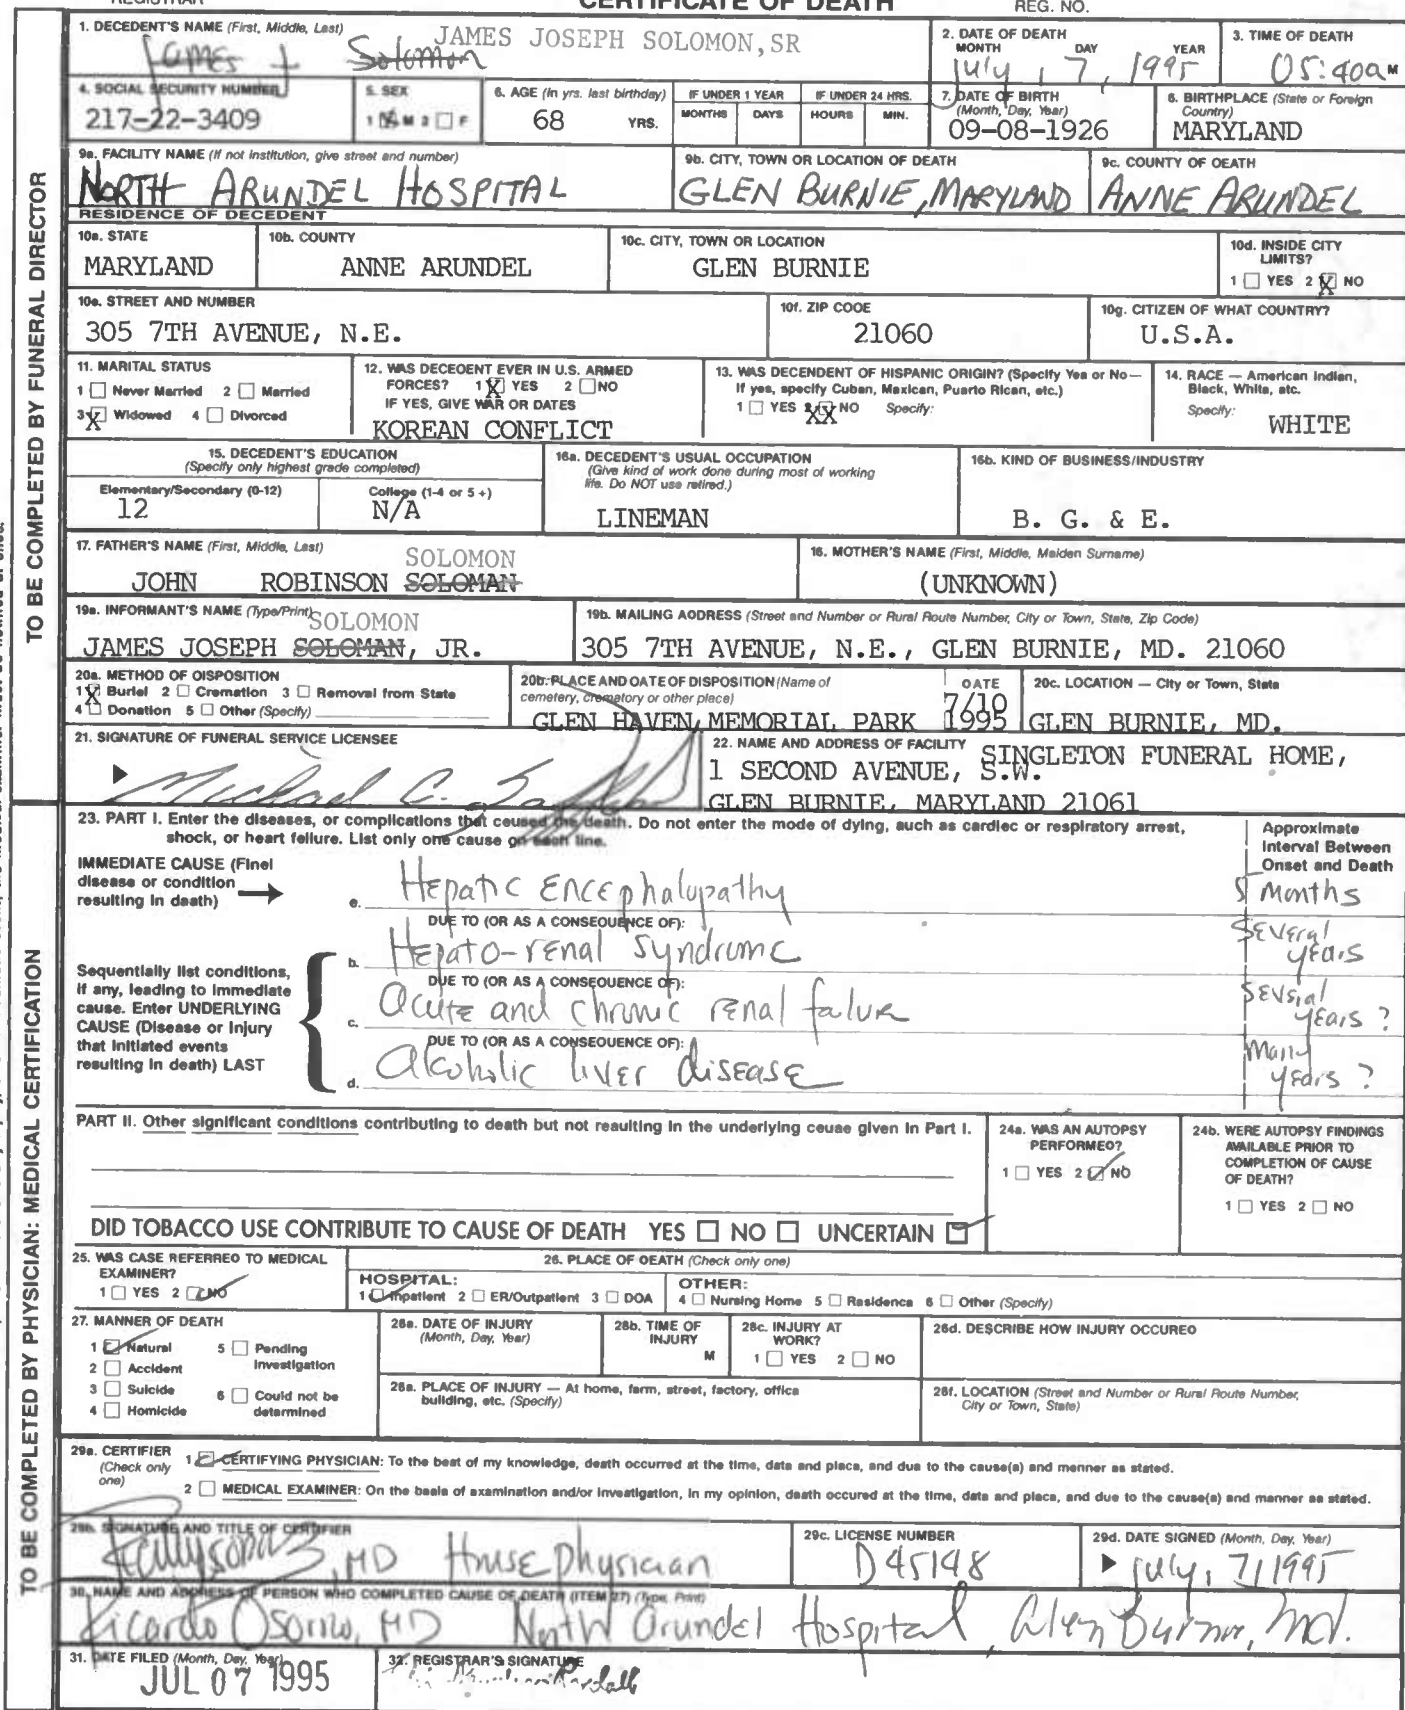 CERTIFICATE OF DEATH
REGISTRAR REG. NO.
1. DECEDENT'S NAME (First, Middle, Last) JAMES JOSEPH SOLOMON, SR
James J Solomon
2. DATE OF DEATH
MONTH DAY YEAR
July, 7, 1995
3. TIME OF DEATH
05:40a M
4. SOCIAL SECURITY NUMBER
217-22-3409
5. SEX
1 M 2 F
6. AGE (In yrs. last birthday)
68 YRS.
IF UNDER 1 YEAR
MONTHS DAYS
IF UNDER 24 HRS.
HOURS MIN.
7. DATE OF BIRTH
(Month, Day, Year)
09-08-1926
8. BIRTHPLACE (State or Foreign
Country)
MARYLAND
9a. FACILITY NAME (If not institution, give street and number)
NORTH ARUNDEL HOSPITAL
9b. CITY, TOWN OR LOCATION OF DEATH
GLEN BURNIE, MARYLAND
9c. COUNTY OF DEATH
ANNE ARUNDEL
RESIDENCE OF DECEDENT
10a. STATE
MARYLAND
10b. COUNTY
ANNE ARUNDEL
10c. CITY, TOWN OR LOCATION
GLEN BURNIE
10d. INSIDE CITY
LIMITS?
1 YES 2 X NO
10e. STREET AND NUMBER
305 7TH AVENUE, N.E.
10f. ZIP CODE
21060
10g. CITIZEN OF WHAT COUNTRY?
U.S.A.
11. MARITAL STATUS
1 Never Married 2 Married
3 X Widowed 4 Divorced
12. WAS DECEDENT EVER IN U.S. ARMED
FORCES? 1 X YES 2 NO
IF YES, GIVE WAR OR DATES
KOREAN CONFLICT
13. WAS DECENDENT OF HISPANIC ORIGIN? (Specify Yes or No—
If yes, specify Cuban, Mexican, Puerto Rican, etc.)
1 YES 2 XX NO Specify:
14. RACE — American Indian,
Black, White, etc.
Specify:
WHITE
15. DECEDENT'S EDUCATION
(Specify only highest grade completed)
Elementary/Secondary (0-12) College (1-4 or 5 +)
12 N/A
16a. DECEDENT'S USUAL OCCUPATION
(Give kind of work done during most of working
life. Do NOT use retired.)
LINEMAN
16b. KIND OF BUSINESS/INDUSTRY
B. G. & E.
17. FATHER'S NAME (First, Middle, Last)
SOLOMON
JOHN ROBINSON SOLOMAN
18. MOTHER'S NAME (First, Middle, Maiden Surname)
(UNKNOWN)
19a. INFORMANT'S NAME (Type/Print)
SOLOMON
JAMES JOSEPH SOLOMAN, JR.
19b. MAILING ADDRESS (Street and Number or Rural Route Number, City or Town, State, Zip Code)
305 7TH AVENUE, N.E., GLEN BURNIE, MD. 21060
20a. METHOD OF DISPOSITION
1 X Burial 2 Cremation 3 Removal from State
4 Donation 5 Other (Specify)
20b. PLACE AND DATE OF DISPOSITION (Name of
cemetery, crematory or other place)
GLEN HAVEN MEMORIAL PARK
DATE
7/10
1995
20c. LOCATION — City or Town, State
GLEN BURNIE, MD.
21. SIGNATURE OF FUNERAL SERVICE LICENSEE
Michael C.
22. NAME AND ADDRESS OF FACILITY SINGLETON FUNERAL HOME,
1 SECOND AVENUE, S.W.
GLEN BURNIE, MARYLAND 21061
TO BE COMPLETED BY FUNERAL DIRECTOR
23. PART I. Enter the diseases, or complications that caused the death. Do not enter the mode of dying, such as cardiac or respiratory arrest,
shock, or heart failure. List only one cause on each line.
Approximate
Interval Between
Onset and Death
IMMEDIATE CAUSE (Final
disease or condition
resulting in death)
a. Hepatic Encephalopathy
Months
DUE TO (OR AS A CONSEQUENCE OF):
b. Hepato-renal Syndrome
Several
years
Sequentially list conditions,
if any, leading to immediate
cause. Enter UNDERLYING
CAUSE (Disease or injury
that initiated events
resulting in death) LAST
DUE TO (OR AS A CONSEQUENCE OF):
c. Acute and chronic renal failure
Several
years ?
DUE TO (OR AS A CONSEQUENCE OF):
d. Alcoholic liver disease
Many
years ?
PART II. Other significant conditions contributing to death but not resulting in the underlying cause given in Part I.
24a. WAS AN AUTOPSY
PERFORMED?
1 YES 2 NO
24b. WERE AUTOPSY FINDINGS
AVAILABLE PRIOR TO
COMPLETION OF CAUSE
OF DEATH?
1 YES 2 NO
DID TOBACCO USE CONTRIBUTE TO CAUSE OF DEATH YES NO UNCERTAIN
25. WAS CASE REFERRED TO MEDICAL
EXAMINER?
1 YES 2 NO
26. PLACE OF DEATH (Check only one)
HOSPITAL:
1 Inpatient 2 ER/Outpatient 3 DOA
OTHER:
4 Nursing Home 5 Residence 6 Other (Specify)
27. MANNER OF DEATH
1 Natural 5 Pending
Investigation
2 Accident
3 Suicide 6 Could not be
determined
4 Homicide
28a. DATE OF INJURY
(Month, Day, Year)
28b. TIME OF
INJURY
M
28c. INJURY AT
WORK?
1 YES 2 NO
28d. DESCRIBE HOW INJURY OCCURED
28e. PLACE OF INJURY — At home, farm, street, factory, office
building, etc. (Specify)
28f. LOCATION (Street and Number or Rural Route Number,
City or Town, State)
29a. CERTIFIER
(Check only
one)
1 CERTIFYING PHYSICIAN: To the best of my knowledge, death occurred at the time, date and place, and due to the cause(s) and manner as stated.
2 MEDICAL EXAMINER: On the basis of examination and/or investigation, in my opinion, death occured at the time, date and place, and due to the cause(s) and manner as stated.
29b. SIGNATURE AND TITLE OF CERTIFIER
, MD House physician
29c. LICENSE NUMBER
D45148
29d. DATE SIGNED (Month, Day, Year)
July, 7, 1995
30. NAME AND ADDRESS OF PERSON WHO COMPLETED CAUSE OF DEATH (ITEM 27) (Type, Print)
Ricardo Osorio, MD North Arundel Hospital, Glen Burnie, Md.
31. DATE FILED (Month, Day, Year)
JUL 07 1995
32. REGISTRAR'S SIGNATURE
TO BE COMPLETED BY PHYSICIAN: MEDICAL CERTIFICATION